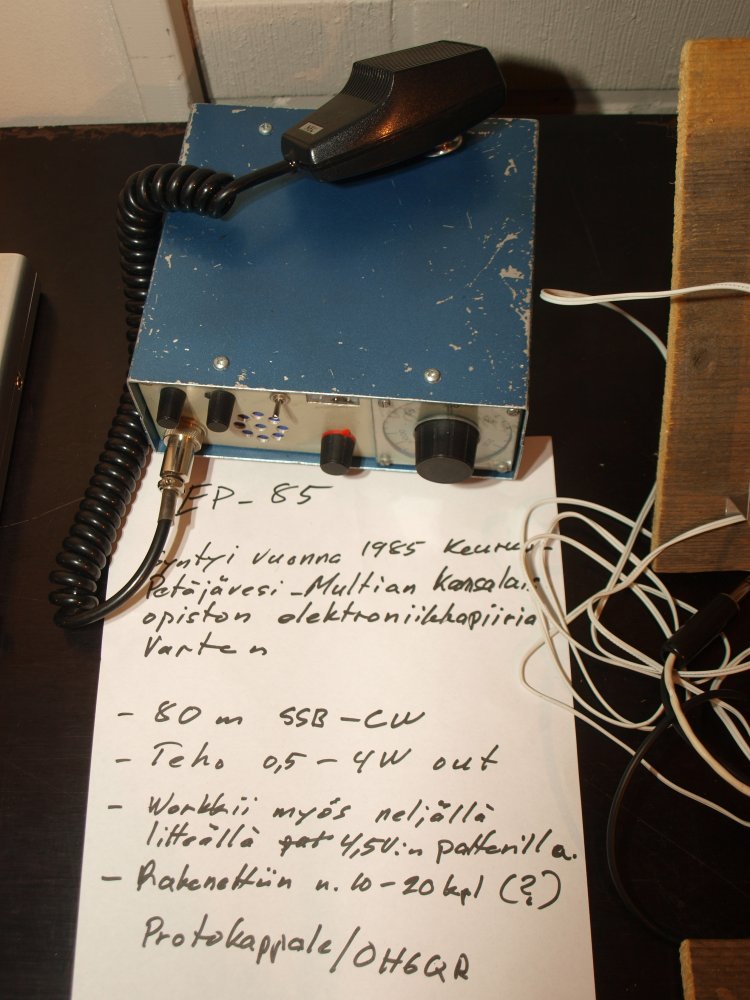 EP-85
Syntyi vuonna 1985 Keuruu-
Petäjävesi-Multian Kansalais
opiston elektroniikkapiiriä
varten
- 80 m SSB-CW
- Teho 0,5 - 4W out
- Workkii myös neljällä
litteällä 4,5V:n patterilla.
- Rakenettiin n. 10-20 kpl (?)
Protokappale/OH6QR